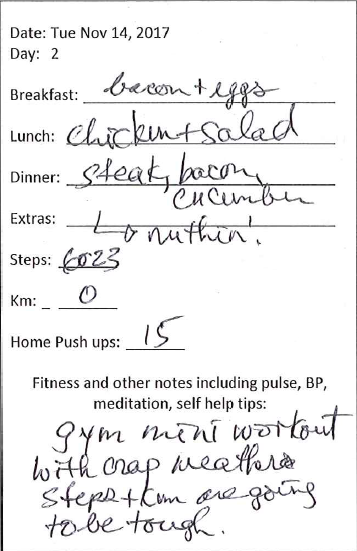 Date: Tue Nov 14, 2017
Day: 2
Breakfast: bacon + eggs
Lunch: chicken + salad
Dinner: steak, bacon,
cucumber
Extras: ↳ nuthin'.
Steps: 6023
Km: 0
Home Push ups: 15
Fitness and other notes including pulse, BP,
meditation, self help tips:
gym mini workout
with crap weather
steps + km are going
to be tough.